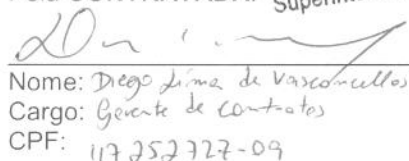 Nome: Diego Lima de Vasconcellos
Cargo: Gerente de contratos
CPF: 117 252 727-09